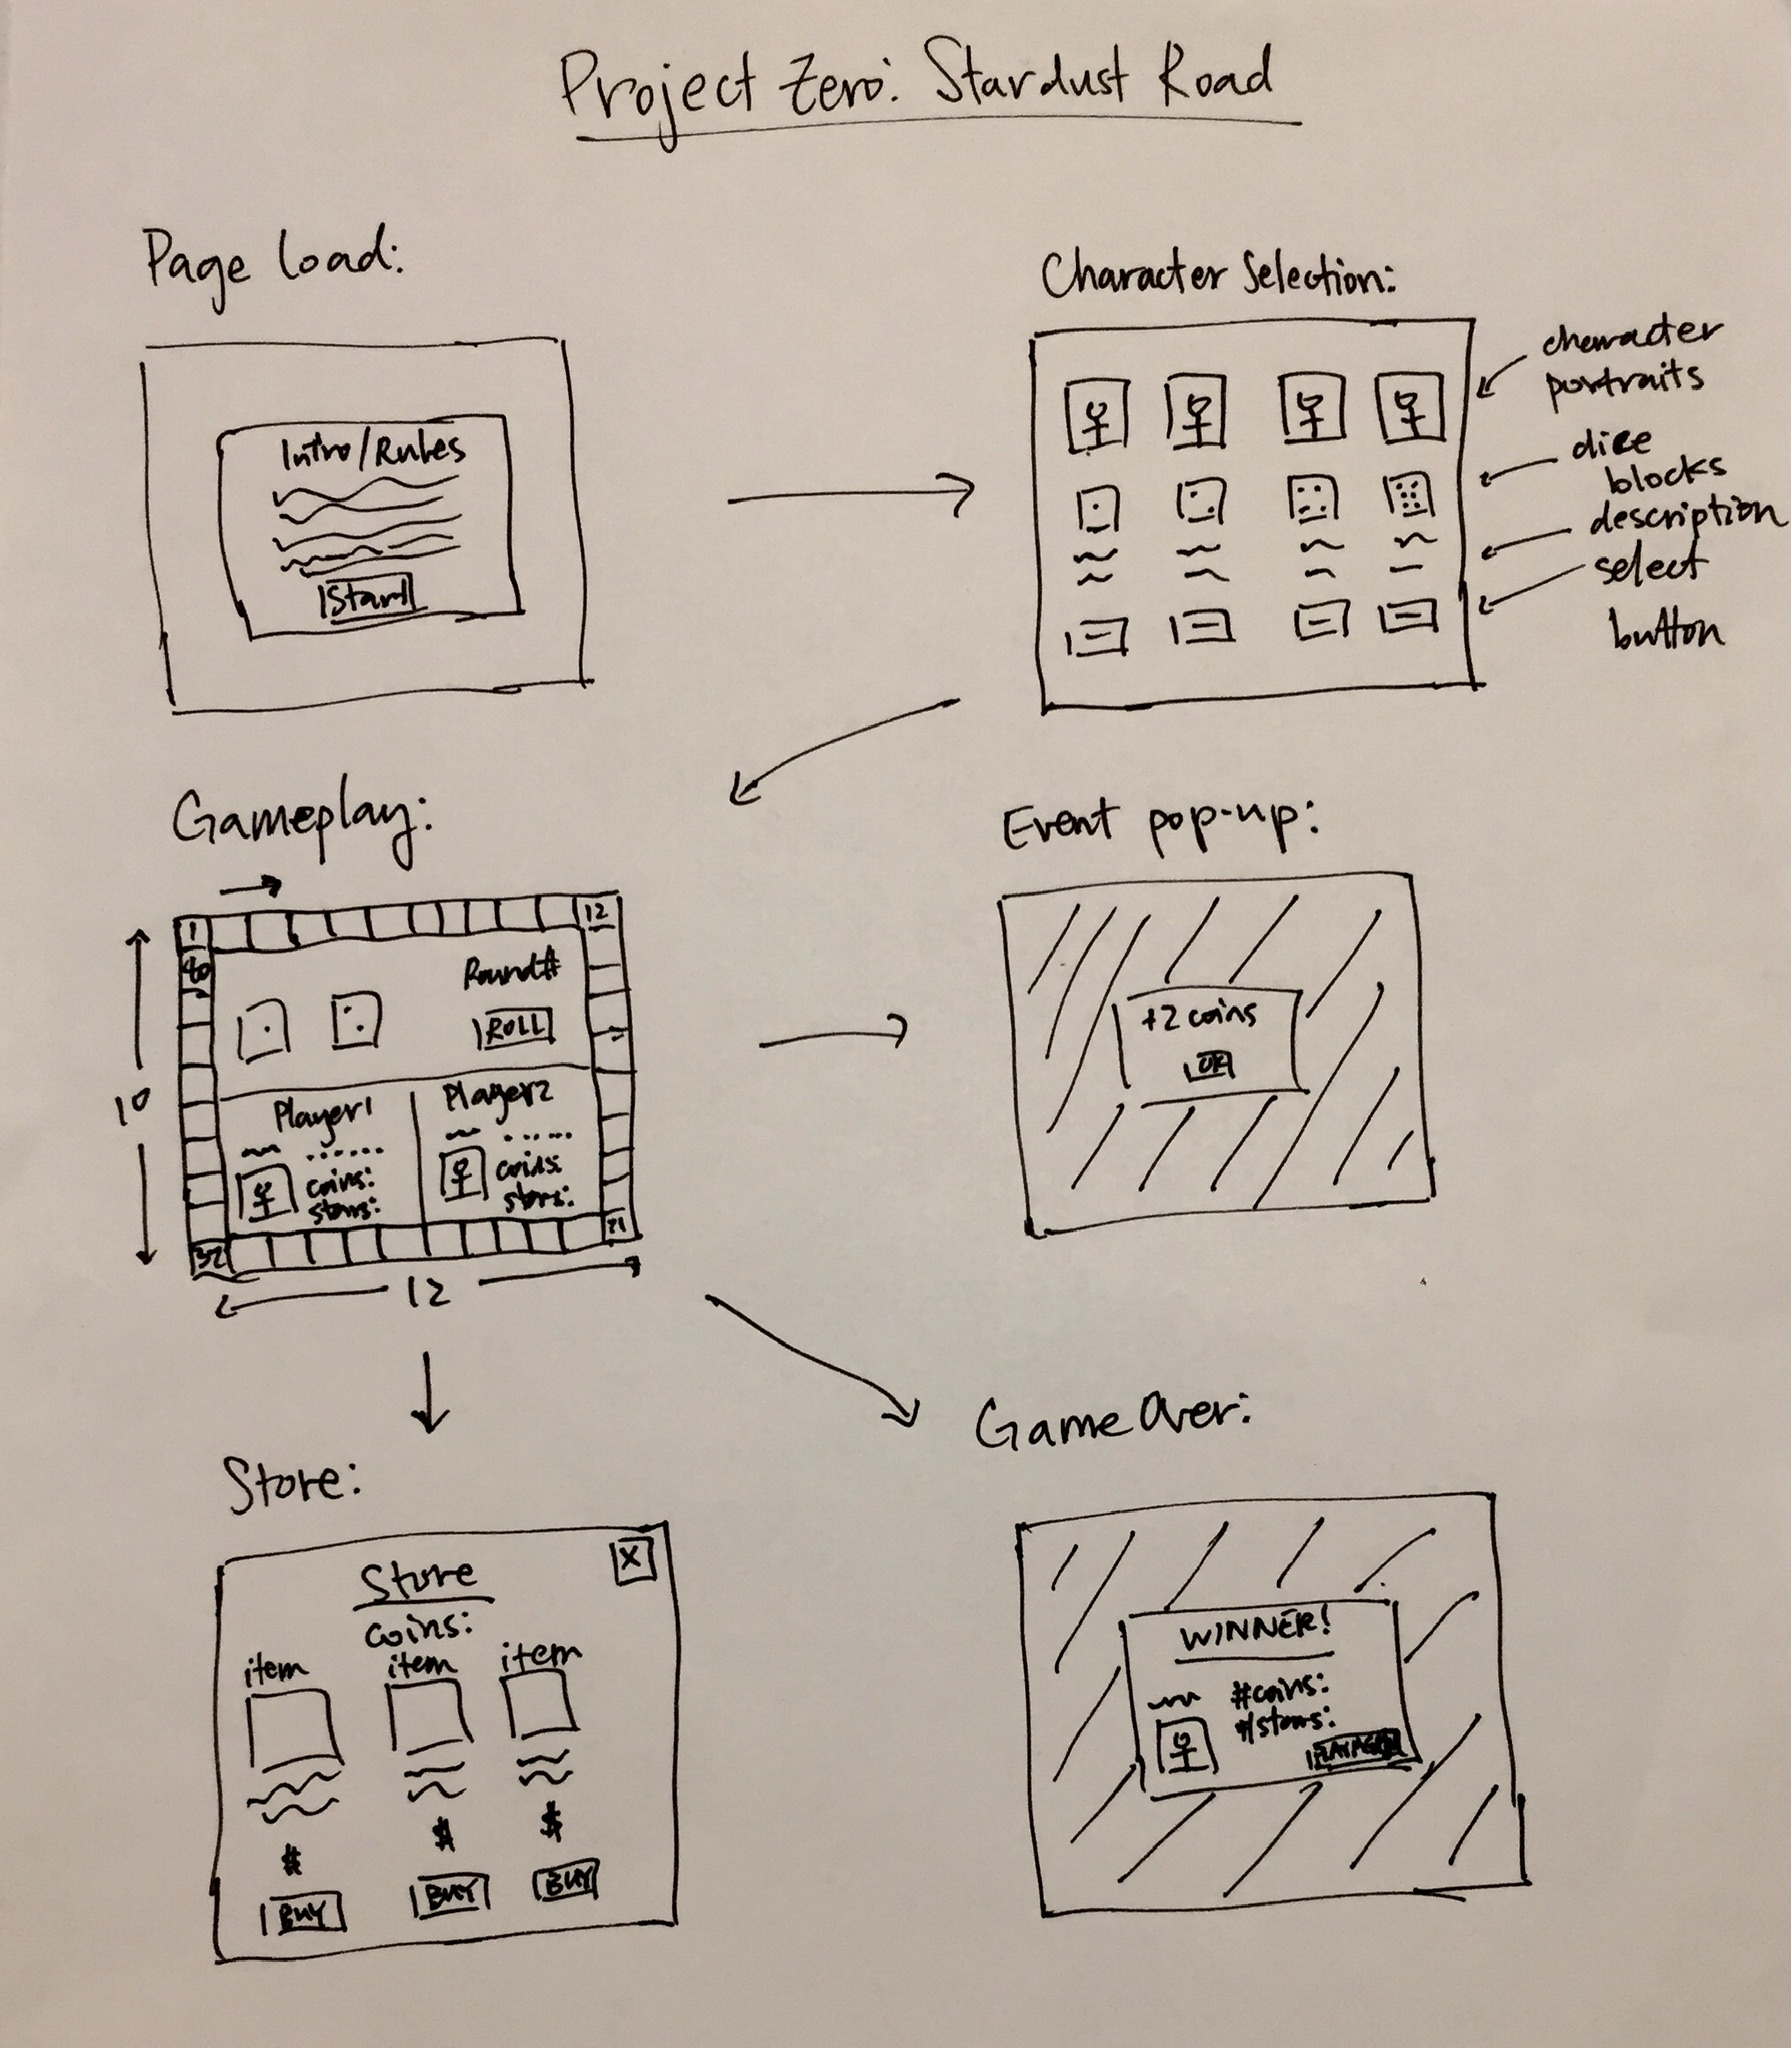 Project Zero: Stardust Road
Page load:
Intro/Rules
Start
Character Selection:
character
portraits
dice
blocks
description
select
button
Gameplay:
1
12
40
Round#
ROLL
Player1
coins:
stars:
Player2
coins:
stars:
32
21
10
12
Event pop-up:
+2 coins
OK
Store:
Store
X
coins:
item
item
item
$
$
$
BUY
BUY
BUY
Game Over:
WINNER!
#coins:
#stars:
PLAY AGAIN